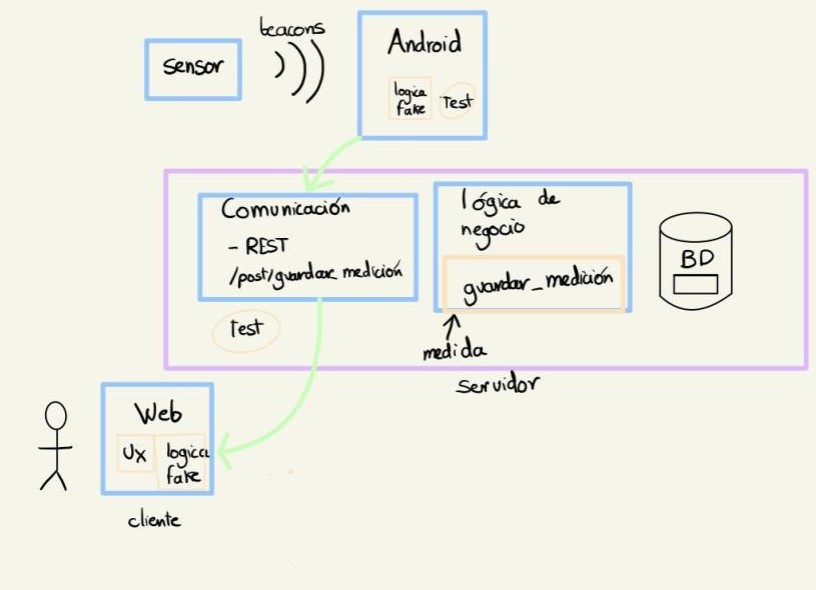 beacons
sensor
Android
logica
fake
Test
Comunicación
- REST
/post/guardar_medición
Test
lógica de
negocio
guardar_medición
medida
BD
servidor
Web
UX
logica
fake
cliente